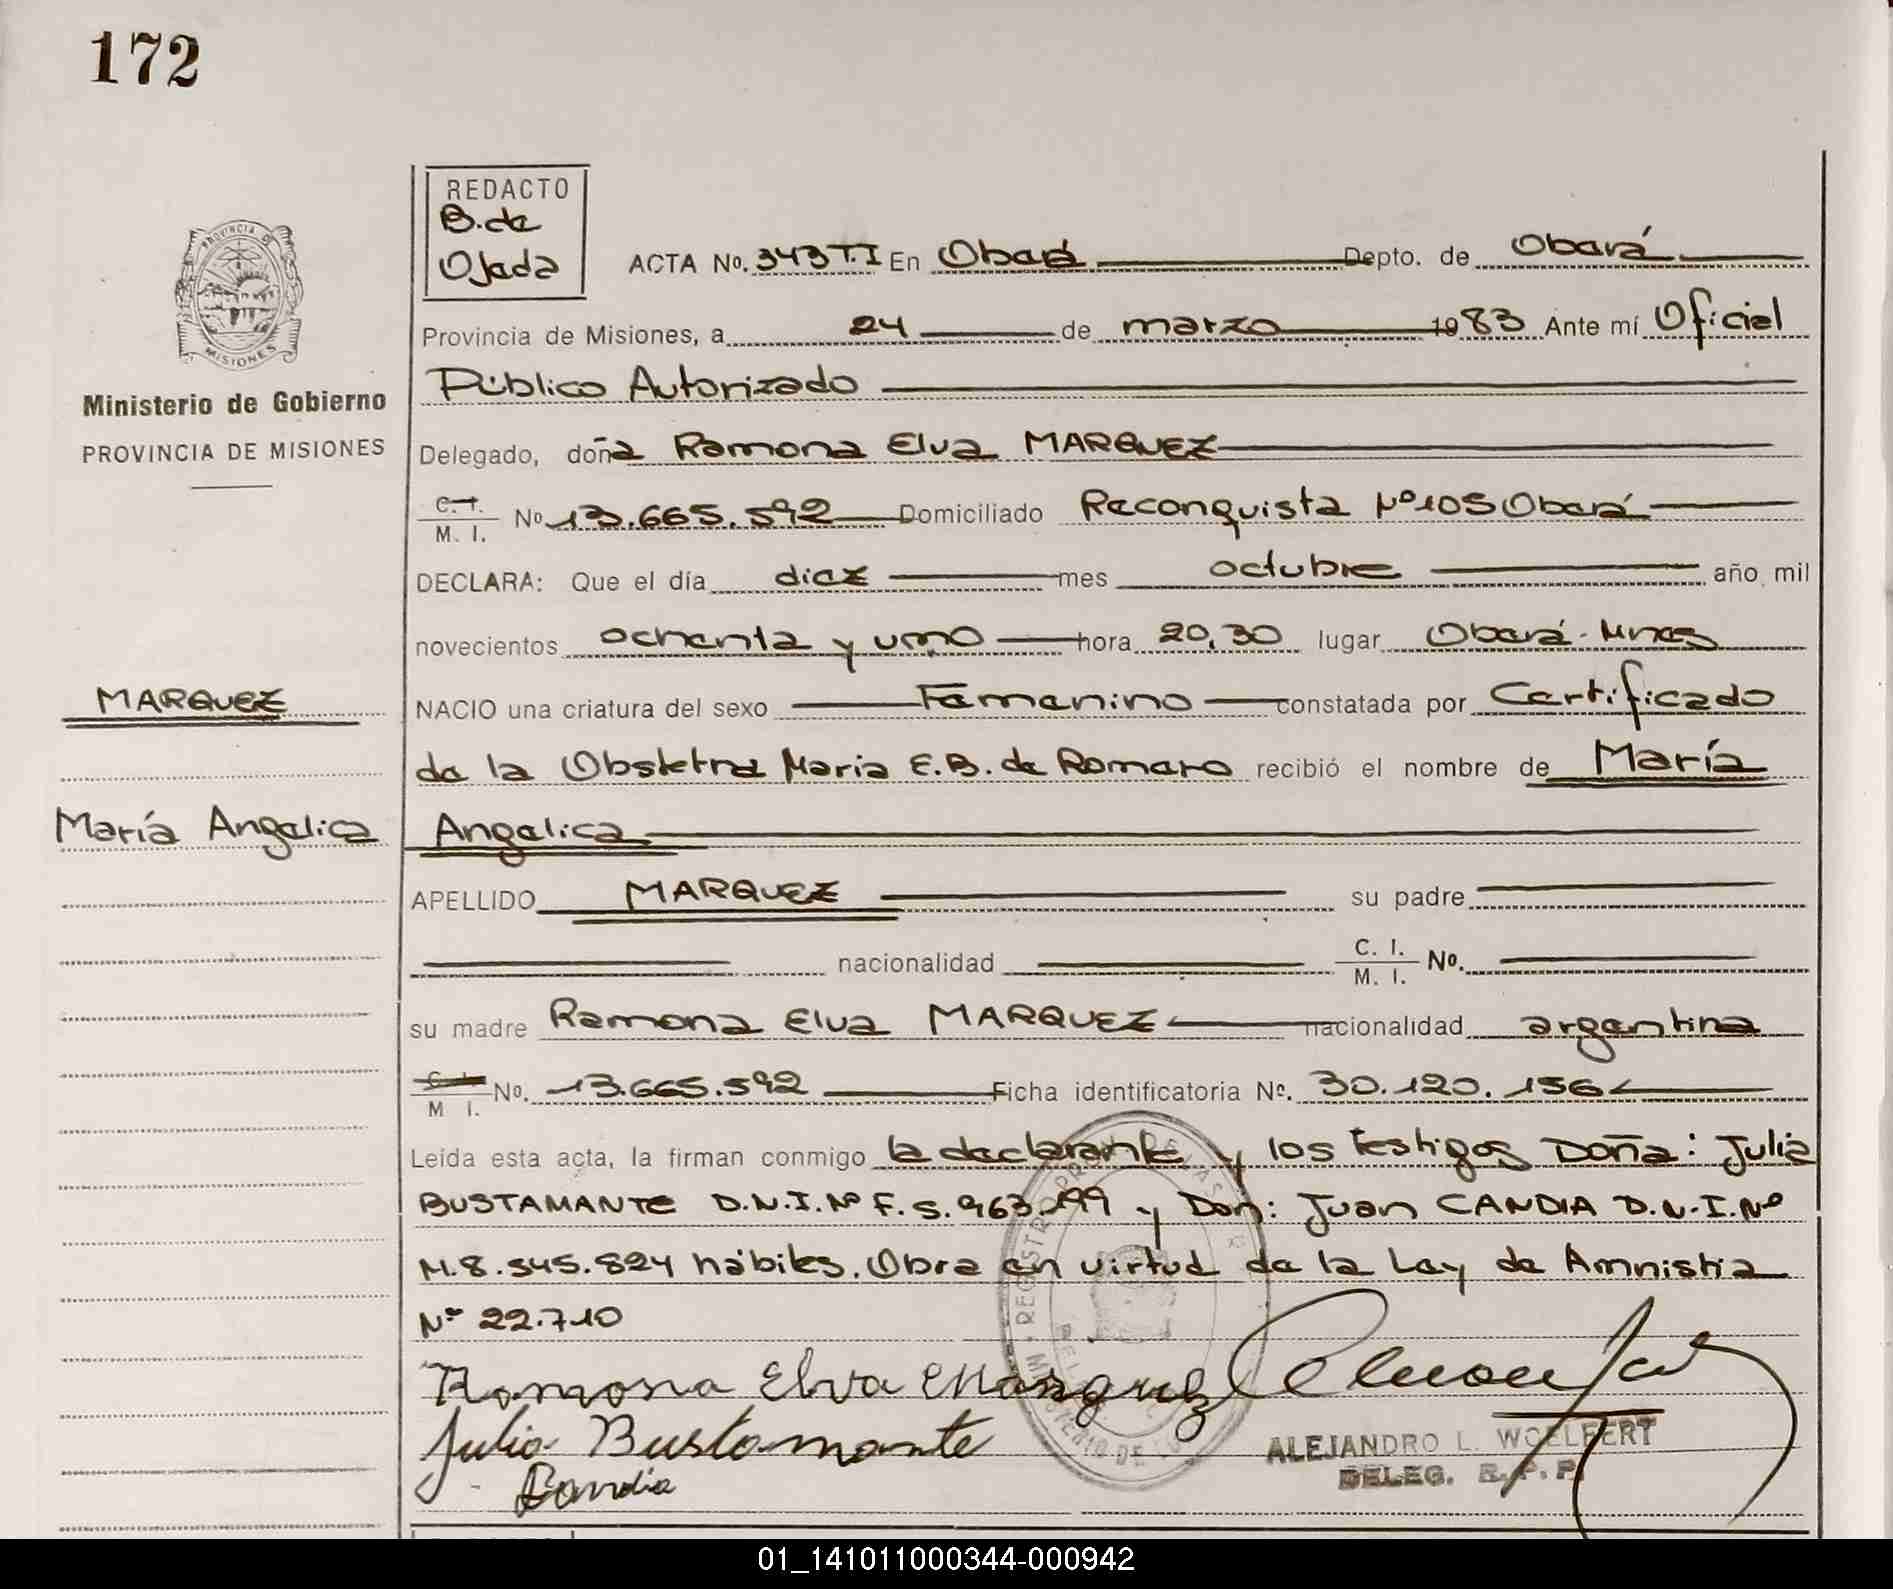 172
REDACTO
B. de
Ojeda
ACTA No. 343 T.I En Oberá Depto. de Oberá
Provincia de Misiones, a 24 de marzo 1983 Ante mí Oficial
Público Autorizado
Delegado, doña Ramona Elva MARQUEZ
C. I.
M. I. No 13.665.592 Domiciliado Reconquista Nº 105 Oberá
DECLARA: Que el día diez mes octubre año mil
novecientos ochenta y uno hora 20,30 lugar Oberá - Mnes
NACIO una criatura del sexo Femenino constatada por Certificado
de la Obstetra Maria E.B. de Romero recibió el nombre de María
Angelica
APELLIDO MARQUEZ su padre
nacionalidad C. I.
M. I. No.
su madre Ramona Elva MARQUEZ nacionalidad argentina
M. I. No. 13.665.592 Ficha identificatoria Nº. 30.120.156
Leída esta acta, la firman conmigo la declarante y los testigos Doña: Julia
BUSTAMANTE D.N.I.Nº F.5.963.199 y Don: Juan CANDIA D.N.I.Nº
M.8.545.824 hábiles. Obra en virtud de la Ley de Amnistia
Nº 22.710
Ramona Elva Marquez
Julia Bustamante
Candia
ALEJANDRO L. WOELFERT
DELEG. R. P. P.
PROVINCIA DE
MISIONES
Ministerio de Gobierno
PROVINCIA DE MISIONES
MARQUEZ
María Angelica
01_141011000344-000942